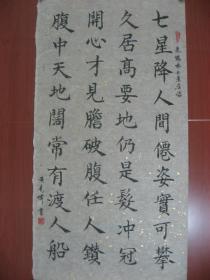 七星降人間僊姿實可攀
久居高要地仍是髮冲冠
開心才見膽破腹任人鑽
腹中天地闊常有渡人船